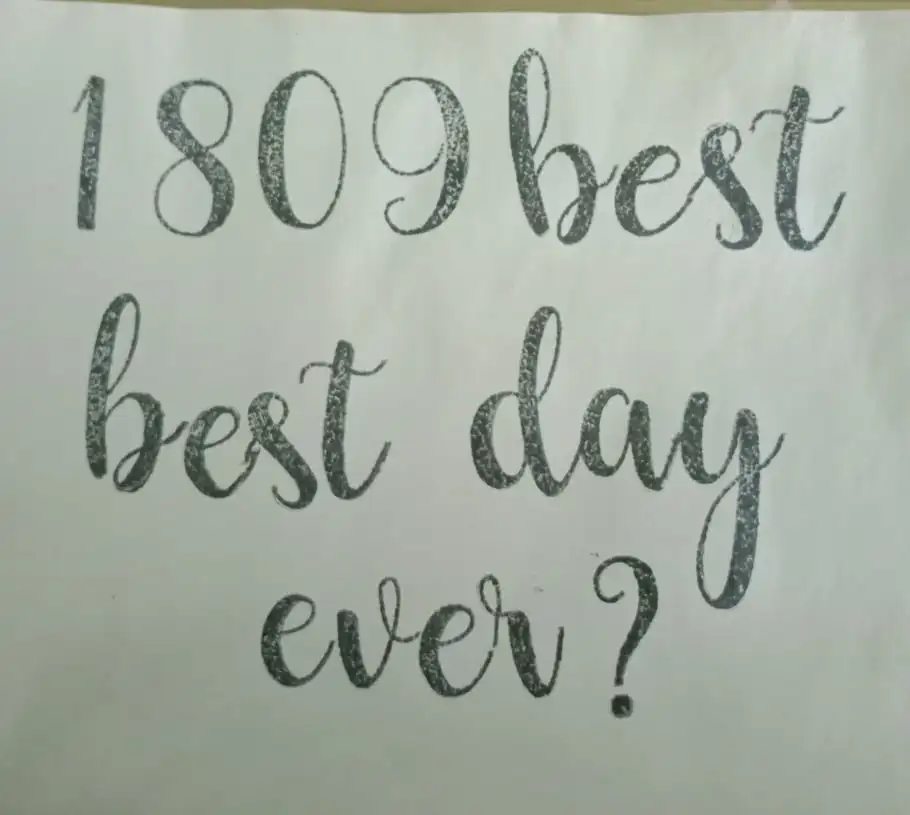 1809 best
best day
ever?